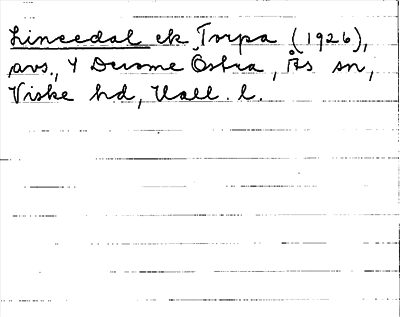 Lincedal ek Torpa (1926),
avs., 4 Derome Östra, Ås sn,
Viske hd, Hall. l.